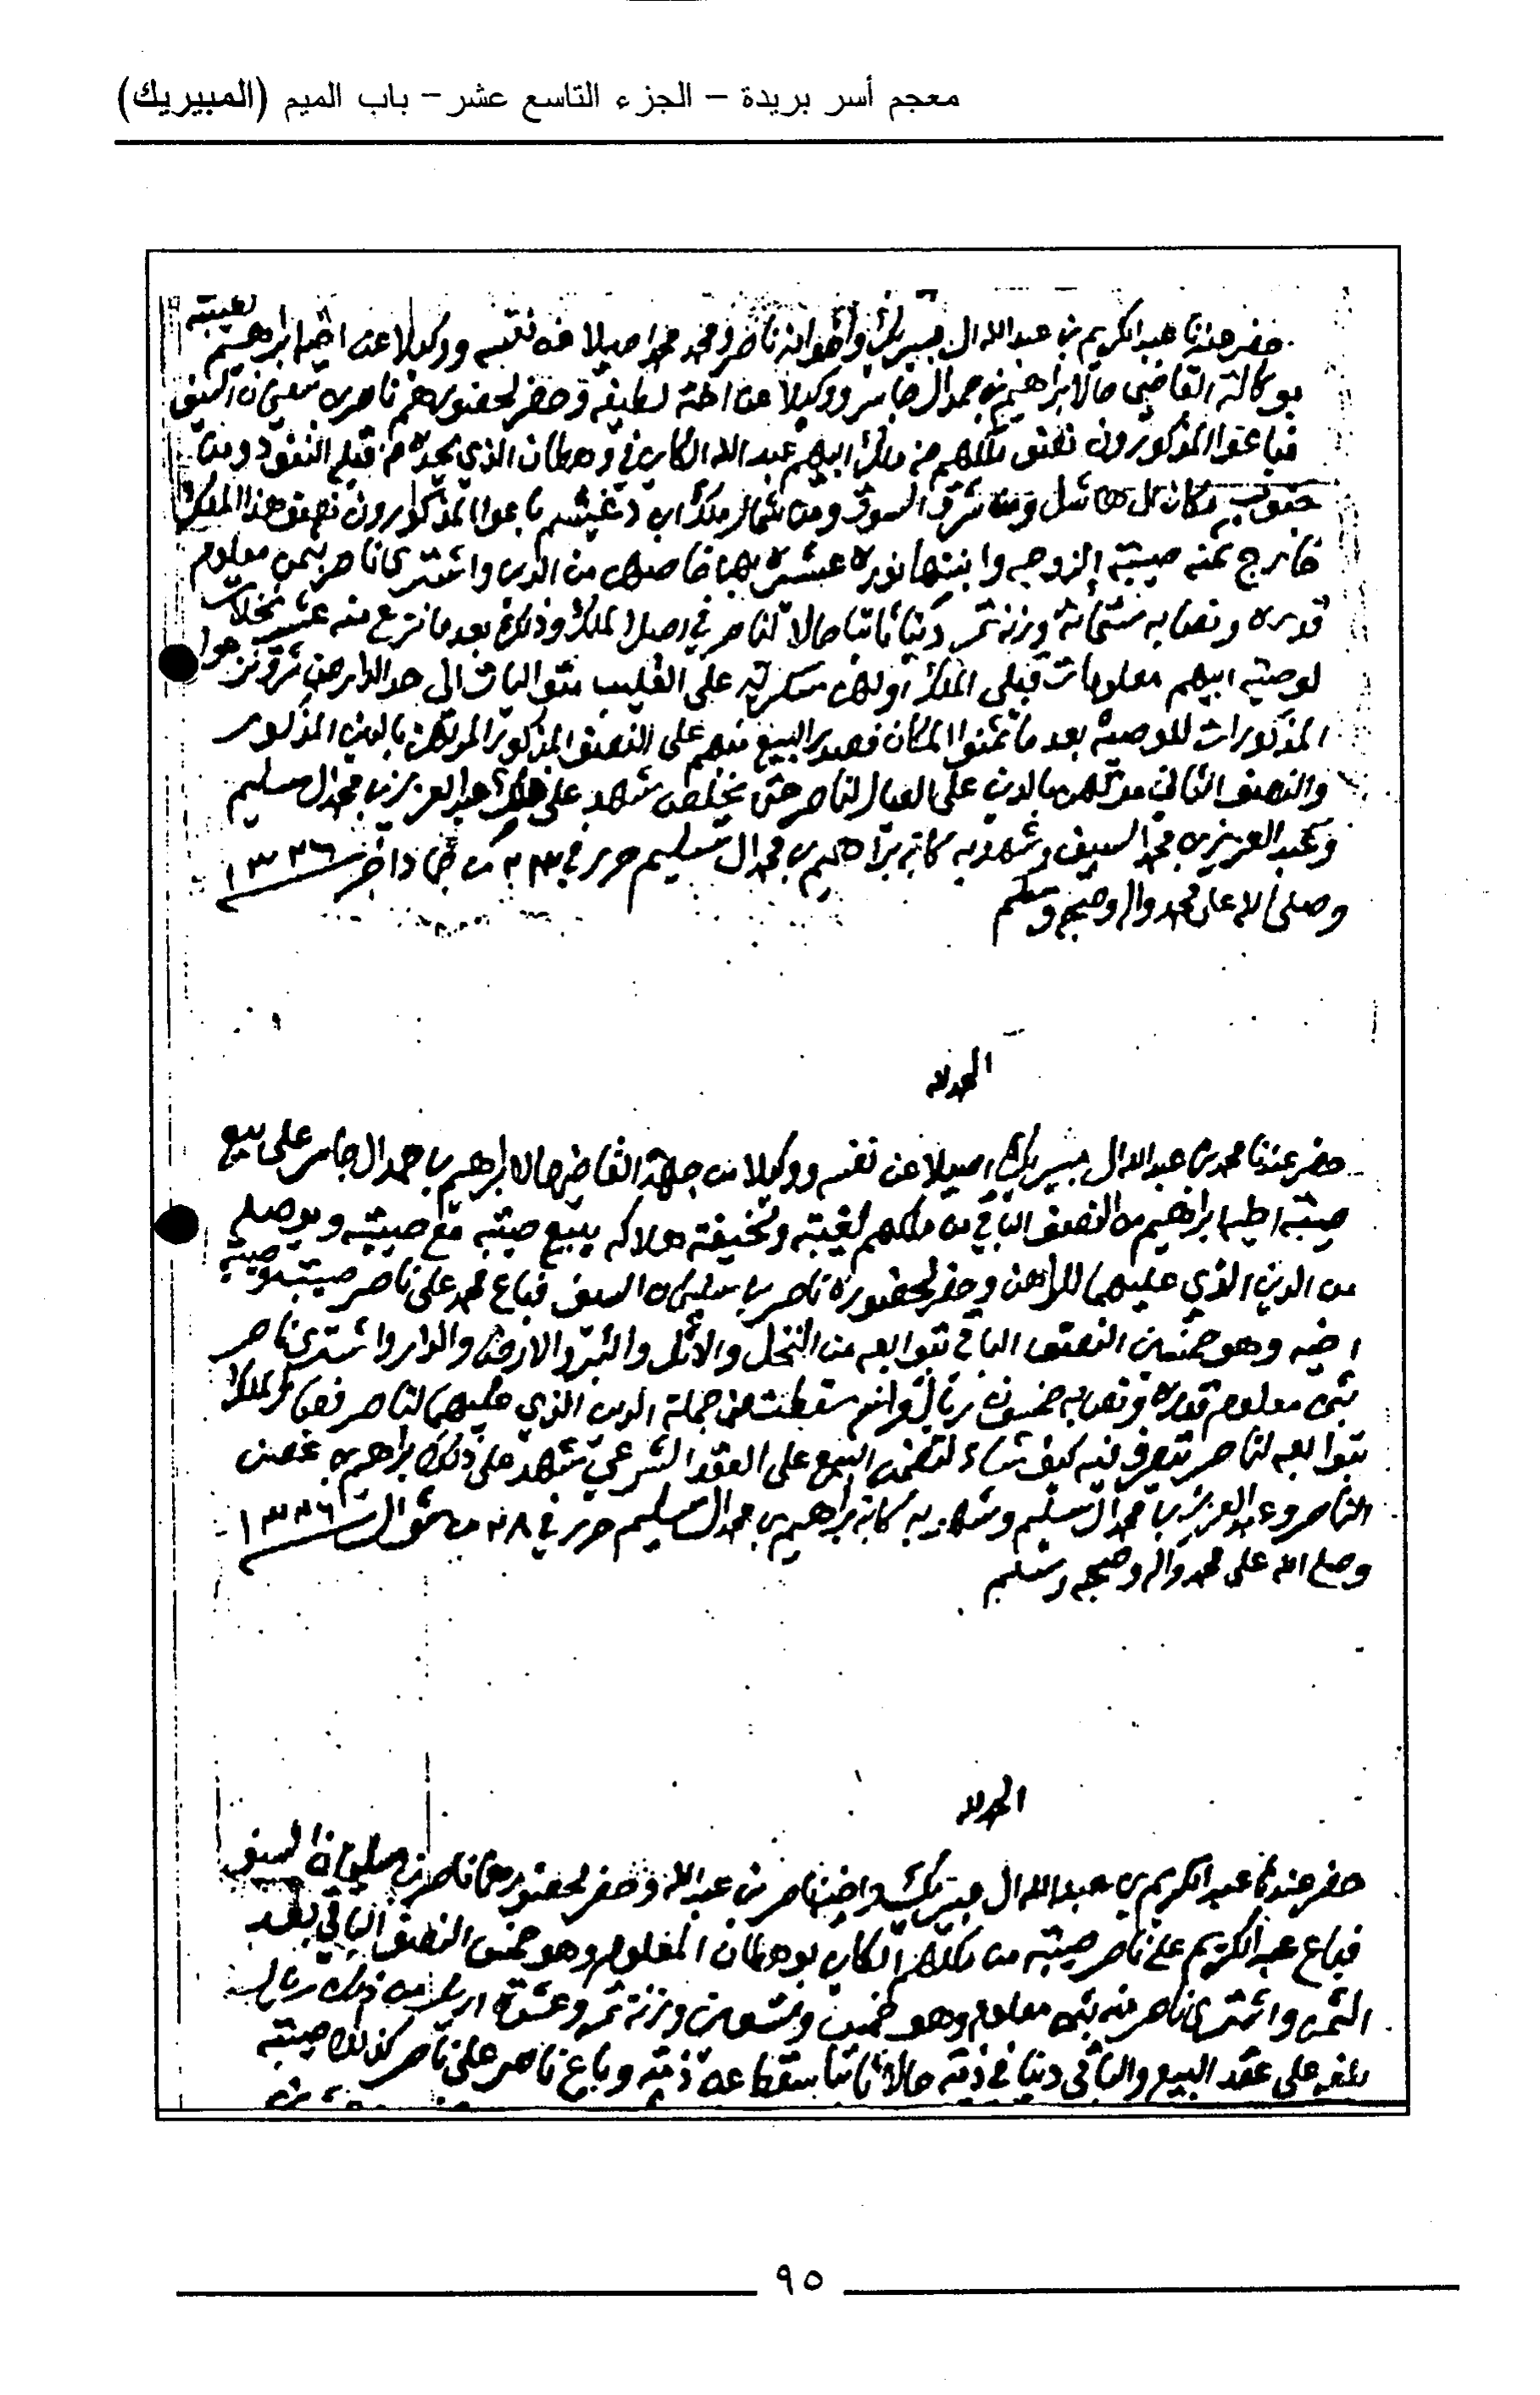 معجم أسر بريدة – الجزء التاسع عشر – باب الميم (المبيريك)
حضر عندنا عبدالكريم بن عبدالله ال مبيريك وأخوانه ناصر ومحمد محمد اصيلا عن نفسه ووكيلا عن اخيه ابراهيم لغيبته
بوكالة القاضي حالا ابراهيم بن حمد ال جاسر ووكيلا عن اخته لطيفه وحضر لحضورهم ناصر بن سليمان السيف
فباعوا المذكورون نصف ملكهم من ملك ابيهم عبدالله الكاين في وهطان الذي يحده من قبله النفود ومن
جنوب مكان ال هاشل ومن شرق السوق ومن شمال ملك ابن دغيثم باعوا المذكورون نصف هذا الملك
خارج عنه صيبة الزوجه وابنتها نوره من الدين واشترى ناصر بثمن معلوم
قدره ونصابه ستمائة وزنة تمر دينا ثابتا حالا لناصر في اصل الملك وذلك بعد ما نزع منه عشر نخلات
لوصية ابيهم معلومات قبلي الملك أولهن سكرية على القليب الى حد الدار من شرق
المذكورات للوصية بعد ما ثمنوا المكان فصدر البيع منهم على النصف المذكور المرتهن بالدين المذكور
والنصف الثاني بالدين على لناصر حتى يخلص شهد على ذلك عبدالعزيز بن محمد ال سليم
وعبدالعزيز بن محمد السيف وشهد به كاتبه ابراهيم بن محمد ال سليم حرر في ٢٣ من جماد اخر ١٣٣٦
وصلى الله على محمد واله وصحبه وسلم
الحمد لله
حضر عندنا محمد بن عبدالله ال مبيريك اصيلا عن نفسه ووكيلا من جهة القاضي حالا ابراهيم بن حمد ال جاسر على بيع
صيبة اخيه ابراهيم من النصف الباقي من ملكهم لغيبته يبيع صيبته مع صيبته ويوصله
من الدين الذي عليهما للراهن وحضر لحضوره ناصر بن سليمان السيف فباع محمد على ناصر صيبته وصيبة
اخيه وهو خمسين النصف الباقي بتوابعه من النخل والاثل والبئر والارض والدار واشترى ناصر
بثمن معلوم قدره ونصابه خمسون ريال سقطت من جملة الدين الذي عليهما لناصر فصار الملك
بتوابعه لناصر يتصرف فيه كيف شاء البيع على العقد الشرعي شهد على ذلك ابراهيم بن غصن
الناصر وعبدالعزيز بن محمد ال سليم وشهد به كاتبه ابراهيم بن محمد ال سليم حرر في ٢٨ من شوال ١٣٣٦
وصلى الله على محمد واله وصحبه وسلم
الحمد لله
حضر عندنا عبدالكريم بن عبدالله ال مبيريك واخيه ناصر بن عبدالله وحضر لحضورهما ناصر بن سليمان السيف
فباع عبدالكريم على ناصر صيبته من ملكهم الكاين بوهطان المعلوم وهو خمس النصف الباقي بعد
الثمن واشترى ناصر منه بثمن معلوم وهو خمس وتسعين وزنة تمر وعشرة اريل من ذلك ريال
بلغه على عقد البيع والباقي دينا في ذمته حالا ثابتا سقط عن ذمته وباع ناصر على ناصر كذلك صيبته
٩٥